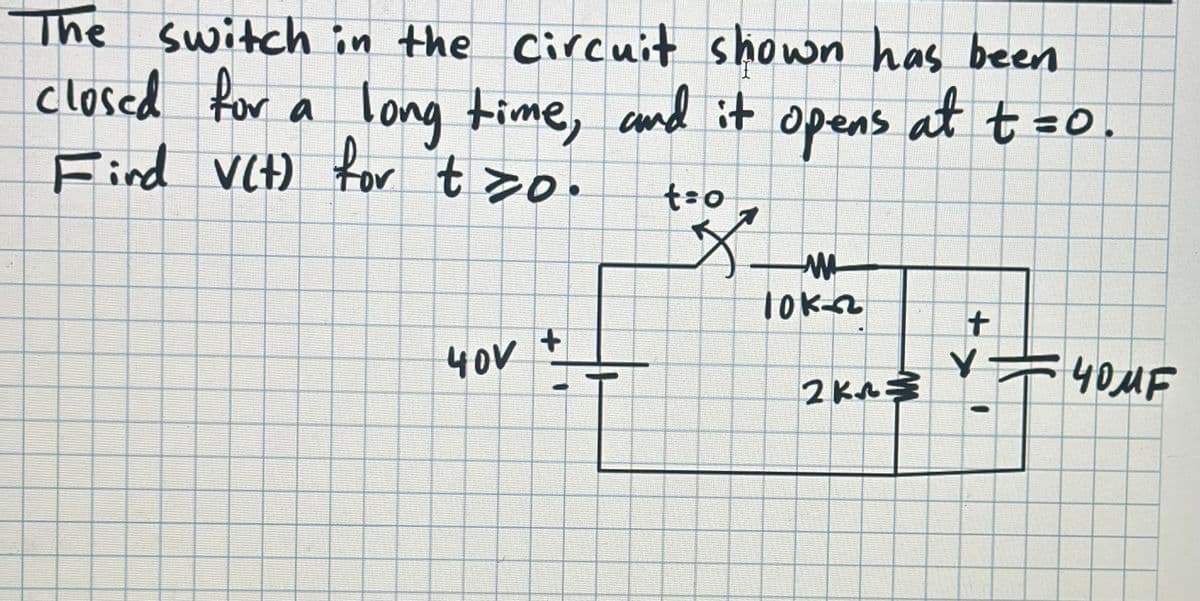 The switch in the circuit shown has been
closed for a long time, and it opens at t=0.
Find v(t) for t≥0.
t=0
10KΩ
40V
+
-
2KΩ
+
V
-
40MF